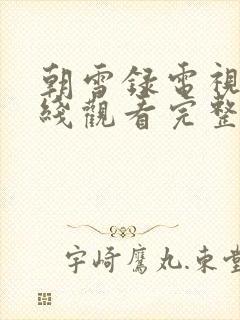 朝雪録電視
綫觀看完整
宇崎鷹丸.東堂